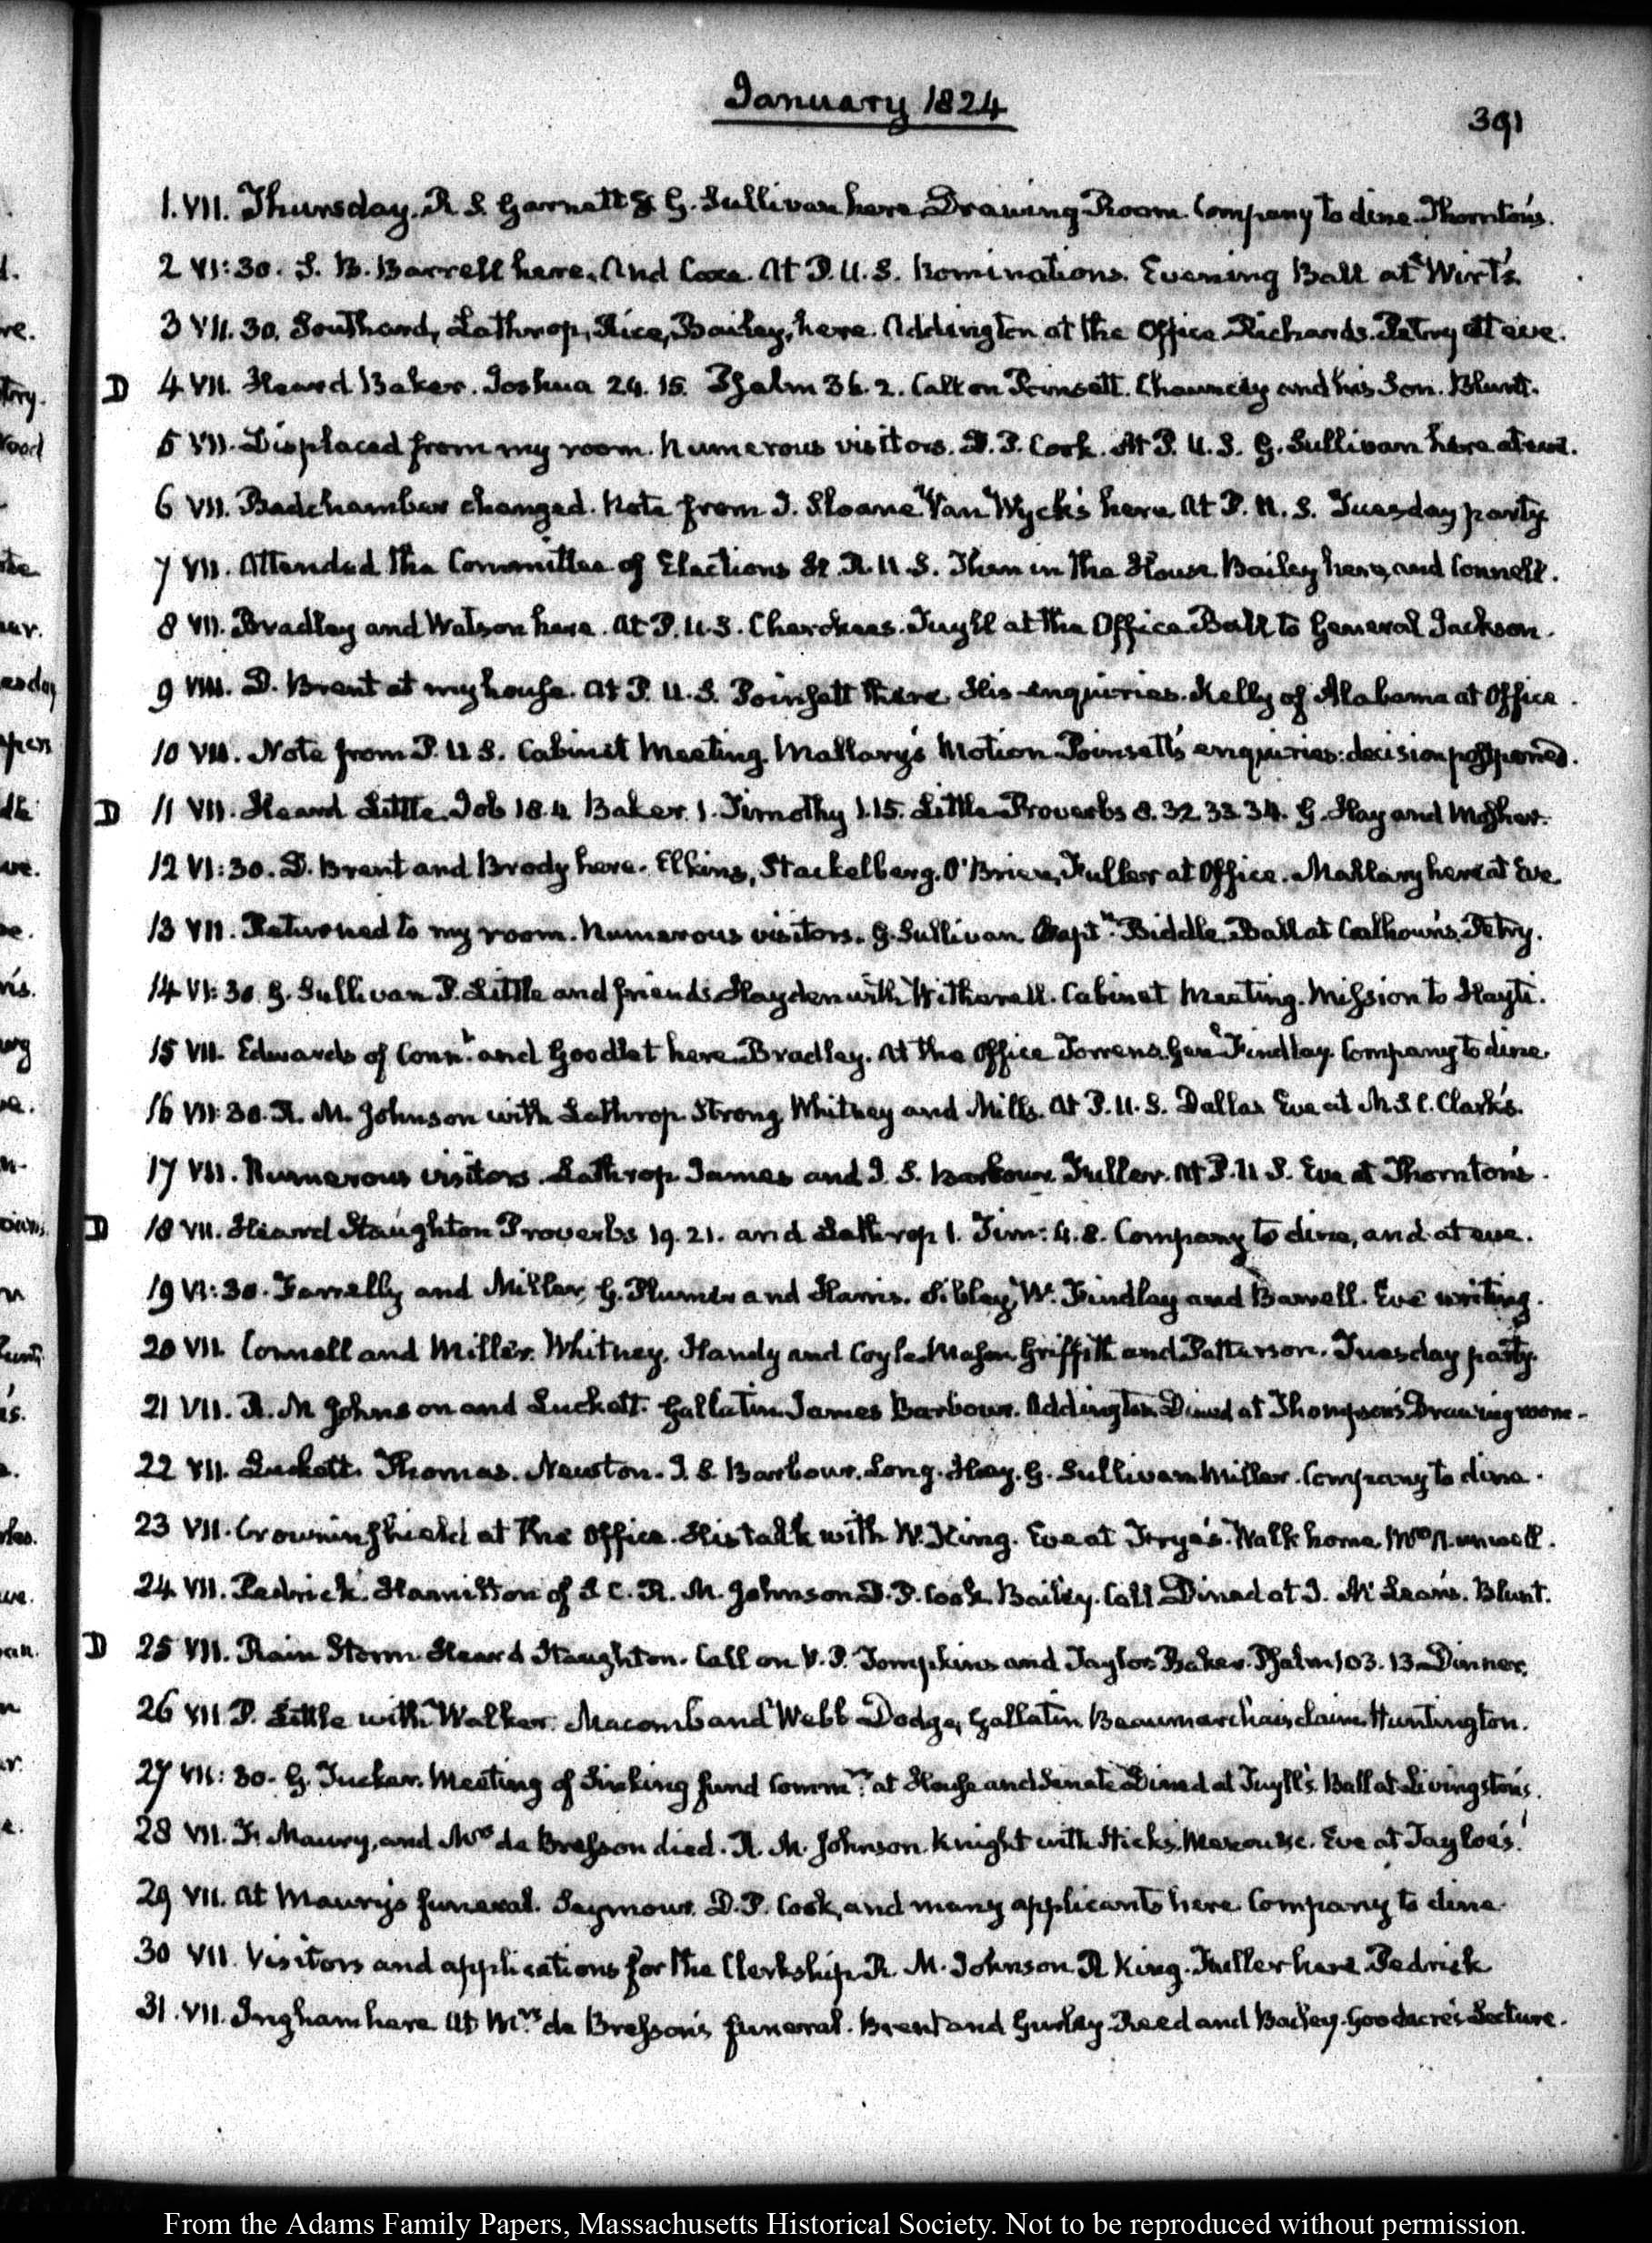 January 1824
391
1. VII. Thursday. R S. Garnett & G. Sullivan here Drawing Room. Company to dine. Thornton's.
2 VI:30. S. B. Barrell here. And Coxe. At P. U. S. Nominations. Evening Ball at Wirt's.
3 VII. 30. Southard, Lathrop, Rice, Bailey, here. Addington at the Office Richards. Petry at eve.
D 4 VII. Heard Baker. Joshua 24. 15. Psalm 36. 2. Call on Poinsett. Chauncey and his Son. Blunt.
5 VII. Displaced from my room. Numerous visitors. D. P. Cook. At P. U. S. G. Sullivan here at eve.
6 VII. Bedchamber changed. Note from J. Sloane Van Wyck's here. At P. U. S. Tuesday party
7 VII. Attended the Committee of Elections H. R. U S. Then in the House. Bailey here, and Connell.
8 VII. Bradley and Watson here. At P. U. S. Cherokees. Tuyll at the Office. Ball to General Jackson.
9 VIII. D. Brent at my house. At P. U. S. Poinsett there. His enquiries. Kelly of Alabama at Office.
10 VII. Note from P. U S. Cabinet Meeting. Mallary's Motion Poinsett's enquiries: decision postponed.
D 11 VII. Heard Little. Job 18. 4. Baker. 1. Timothy 1. 15. Little Proverbs 8. 32. 33. 34. G. Hay and Mosher.
12 VI:30. D. Brent and Brody here. Elkins, Stackelberg. O'Brien, Fuller at Office. Mallary here at Eve
13 VII. Returned to my room. Numerous visitors. G. Sullivan. Captn. Biddle. Ball at Calhoun's. Petry.
14 VI:30 G. Sullivan. P. Little and friends. Hayden with Witherell. Cabinet Meeting. Mission to Hayti.
15 VII. Edwards of Connt. and Goodlet here. Bradley. At the Office Torrens. Genl Findlay. Company to dine.
16 VII:30. R. M. Johnson with Lathrop. Strong, Whitney and Mills. At P. U. S. Dallas Eve at M. S. C. Clark's.
17 VII. Numerous visitors. Lathrop. James and J. S. Barbour. Fuller. At P. U S. Eve at Thornton's.
D 18 VII. Heard Staughton Proverbs 19. 21. and Lathrop 1. Tim: 4. 8. Company to dine, and at eve.
19 VI:30. Farrelly and Miller, G. Plumer and Harris. Sibley, W. Findlay and Barrell. Eve writing.
20 VII. Connell and Miller. Whitney. Handy and Coyle. Mason. Griffith and Patterson. Tuesday party.
21 VII. R. M Johnson and Luckett. Gallatin. James Barbour. Addington. Dined at Thompson's Drawing room.
22 VII. Luckett. Thomas. Newton. J. S. Barbour. Long. Hay. G. Sullivan. Miller. Company to dine.
23 VII. Crowninshield at the Office. His talk with W. King. Eve at Frye's. Walk home. Mrs
24 VII. Pedrick. Hamilton of S C. R. M. Johnson D. P. Cook. Bailey. Call Dined at J. McLean's. Blunt.
D 25 VII. Rain Storm. Heard Staughton. Call on V. P. Tompkins and Taylor. Baker. Psalm 103. 13. Dinner.
26 VII. P. Little with Walker. Macomb and Webb Dodge, Gallatin. Beaumarchais claim. Huntington.
27 VII:30. G. Tucker. Meeting of Sinking fund Commrs. at House and Senate Dined at Tuyll's. Ball at Livingston's.
28 VII. F. Maury, and Mrs de Bresson died. R. M. Johnson. Knight with Hicks. Eve at Tayloe's.
29 VII. At Maury's funeral. Seymour. D. P. Cook, and many applicants here. Company to dine.
30 VII. Visitors and applications for the Clerkship. R. M. Johnson. R King. Fuller here Pedrick
31. VII. Ingham here. At Mrs. de Bresson's funeral. Brent and Gurley. Reed and Bailey. Goodacre's Lecture.
From the Adams Family Papers, Massachusetts Historical Society. Not to be reproduced without permission.